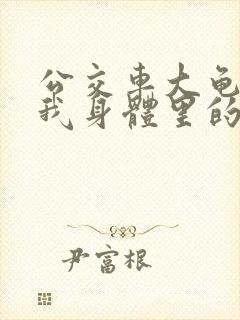 公交车大龟
我身體里的
尹富根